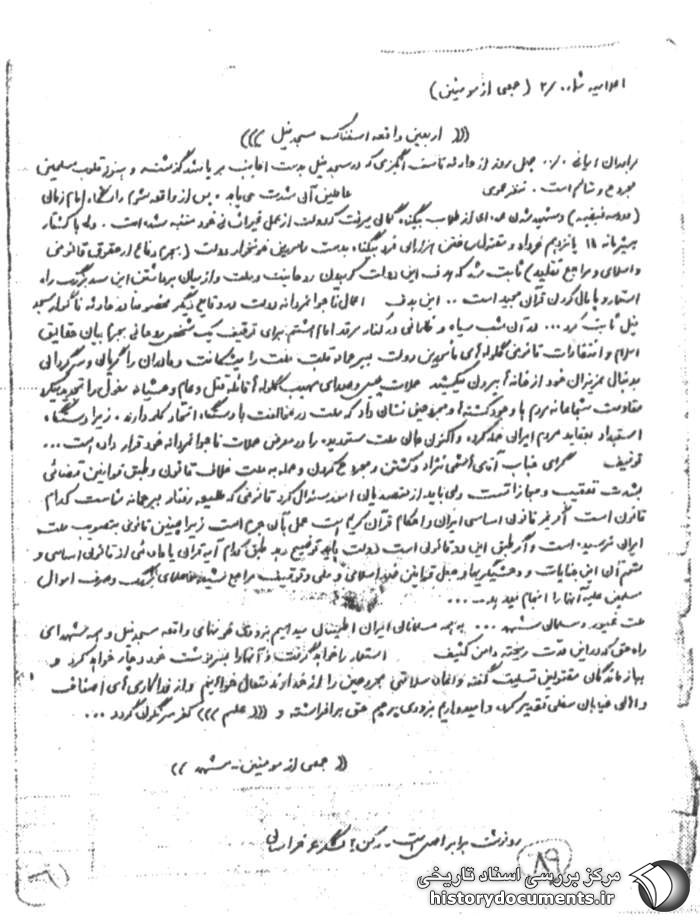 اعلامیه شماره ۲/۰۰ (جمعی از مومنین)
((( اربعین واقعه اسفناک مسجد فیل )))
برادران ایرانی ۰/۰۰ چهل روز از حادثه تاسف انگیزی که در مسجد فیل بدست اجانب بر پا شد گذشته و هنوز قلوب مسلمین
مجروح و متالم است . تنفر عمومی عاملین آن شدت می یابد . پس از واقعه شوم دانشگاه امام زمان
(مدرسه فیضیه) و شهید شدن عده ای از طلاب بیگناه گمان میرفت که دولت از عمل غیرانسانی خود متنبه شده است . ولی با کشتار
بیشرمانه ۱۵ پانزدهم خرداد و مقتول ساختن هزارها فرد بیگناه بدست مامورین خونخوار دولت (بجرم دفاع از حقوق قانونی
و اسلامی و مراجع تقلید) ثابت شد که هدف این دولت کوبیدن روحانیت و ملت و از میان برداشتن این سد بزرگ راه
استعمار و پامال کردن قرآن مجید است .. این هدف اعمال ناجوانمردانه دولت در وقایع دیگر مخصوصا در حادثه ناگوار مسجد
فیل ثابت کرد ... در آن شب سیاه و ظلمانی در کنار مرقد امام هشتم برای توقیف یک شخص روحانی بجرم بیان حقایق
اسلام و انتقادات قانونی گلوله های مامورین دولت بیرحمانه قلب ملت را میشکافت و مادران را گریان و سرگردانی
بدنبال عزیزان خود از خانه ها بیرون میکشید حملات پلیس و صدای مهیب گلوله ها قتل عام وحشیانه مغول را تجدید میکرد
مقاومت شجاعانه مردم با وجود کشته ها و مجروحین نشان داد که ملت در مخالفت با دستگاه انتظار کار دارند . زیرا دستگاه
استبداد بعقاید مردم ایران حمله کرده و اکنون جان ملت ستمدیده را در معرض حملات ناجوانمردانه خود قرار داده است ...
توقیف گرامی جناب آقای هاشمی نژاد و کشتن و مجروح کردن و حمله به ملت خلاف قانون و طبق قوانین قضائی
بشدت تعقیب و مجازاتست ولی باید از متصدیان امور سئوال کرد قانونی که علیه رفتار بیرحمانه شماست کدام
قانون است اگر قانون اساسی ایران و احکام قرآن کریم است عمل تان جرم است زیرا چنین قانونی بتصویب ملت
ایران نرسیده است و اگر طبق این دو قانونی است دولت باید توضیح دهد طبق کدام آیه قرآن یا ماده ئی از قانون اساسی و
متمم آن این جنایات و وحشیگریها و جعل قوانین ضد اسلامی و ملی و توقیف مراجع و صرف اموال
مسلمین علیه آنها را انجام میدهد ...
ملت غیور و مسلمان مشهد ... بهمه مسلمانان ایران اطمینان میدهیم بزودی خونهای واقعه مسجد فیل و همه شهدای
راه حق که در این مدت ریخته دامن کثیف استعمار را خواهد گرفت و آنها را بسرنوشت خود دچار خواهد کرد و
ببازماندگان مقتولین تسلیت گفته و امان سلامتی مجروحین را از خداوند متعال خواهانیم و از فداکاری های اصناف
و اهالی خیابان سفلی تقدیر کرده و امیدواریم بزودی پرچم حق برافراشته و ((( علم ))) کفر سرنگون گردد ...
(( جمعی از مومنین ــ مشهد ))
رونوشت برابر اصل است .. رکن ۲ لشگر ۶ خراسان
۸۹
مرکز بررسی اسناد تاریخی
historydocuments.ir